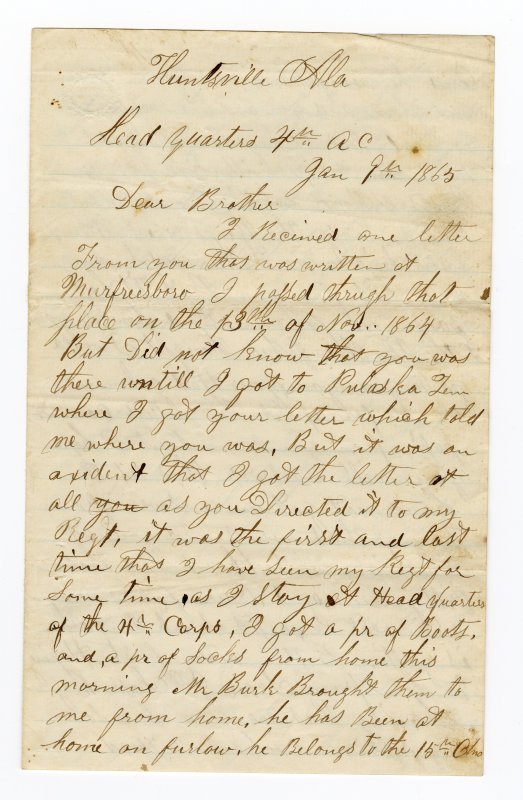 Huntsville Ala
Head quarters 4th A C
Jan 9th 1865
Dear Brother
I Recieved one letter
From you that was written at
Murfreesboro I passed thrugh that
place on the 13th of Nov. 1864
But Did not know that you was
there untill I got to Pulaska Tenn
where I got your letter which told
me where you was, But it was an
axident that I got the letter at
all you as you Directed it to my
Regt, it was the first and last
time that I have seen my Regt for
Some time as I stay at Head quarters
of the 4th Corps, I got a pr of Boots,
and, a pr of Socks from home this
morning Mr Burk Brought them to
me from home, he has Been at
home on furlow, he Belongs to the 15th Ohio